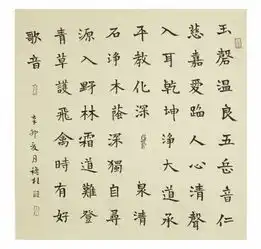 玉磬温良五岳音仁
慈嘉爱 人心清聲
入耳乾坤浄大道承
平教化深 泉清
石浄木蔭深獨自尋
源入野林霜道難登
青草護飛禽時有好
歌音
辛卯夏月